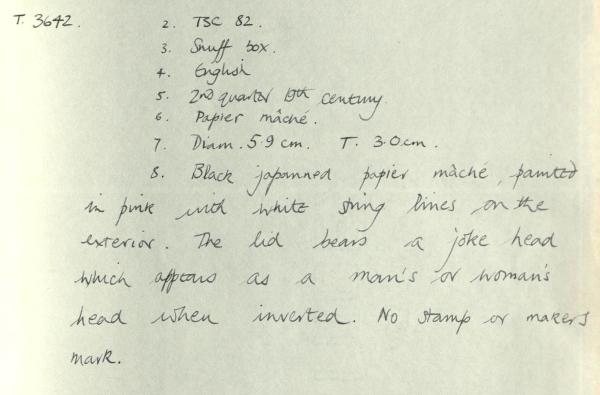 T. 3642.
2. TSC 82.
3. Snuff box.
4. English
5. 2nd quarter 19th century.
6. Papier mâché.
7. Diam. 5.9 cm. T. 3.0 cm.
8. Black japanned papier mâché, painted
in pink with white string lines on the
exterior. The lid bears a joke head
which appears as a man's or woman's
head when inverted. No stamp or makers
mark.